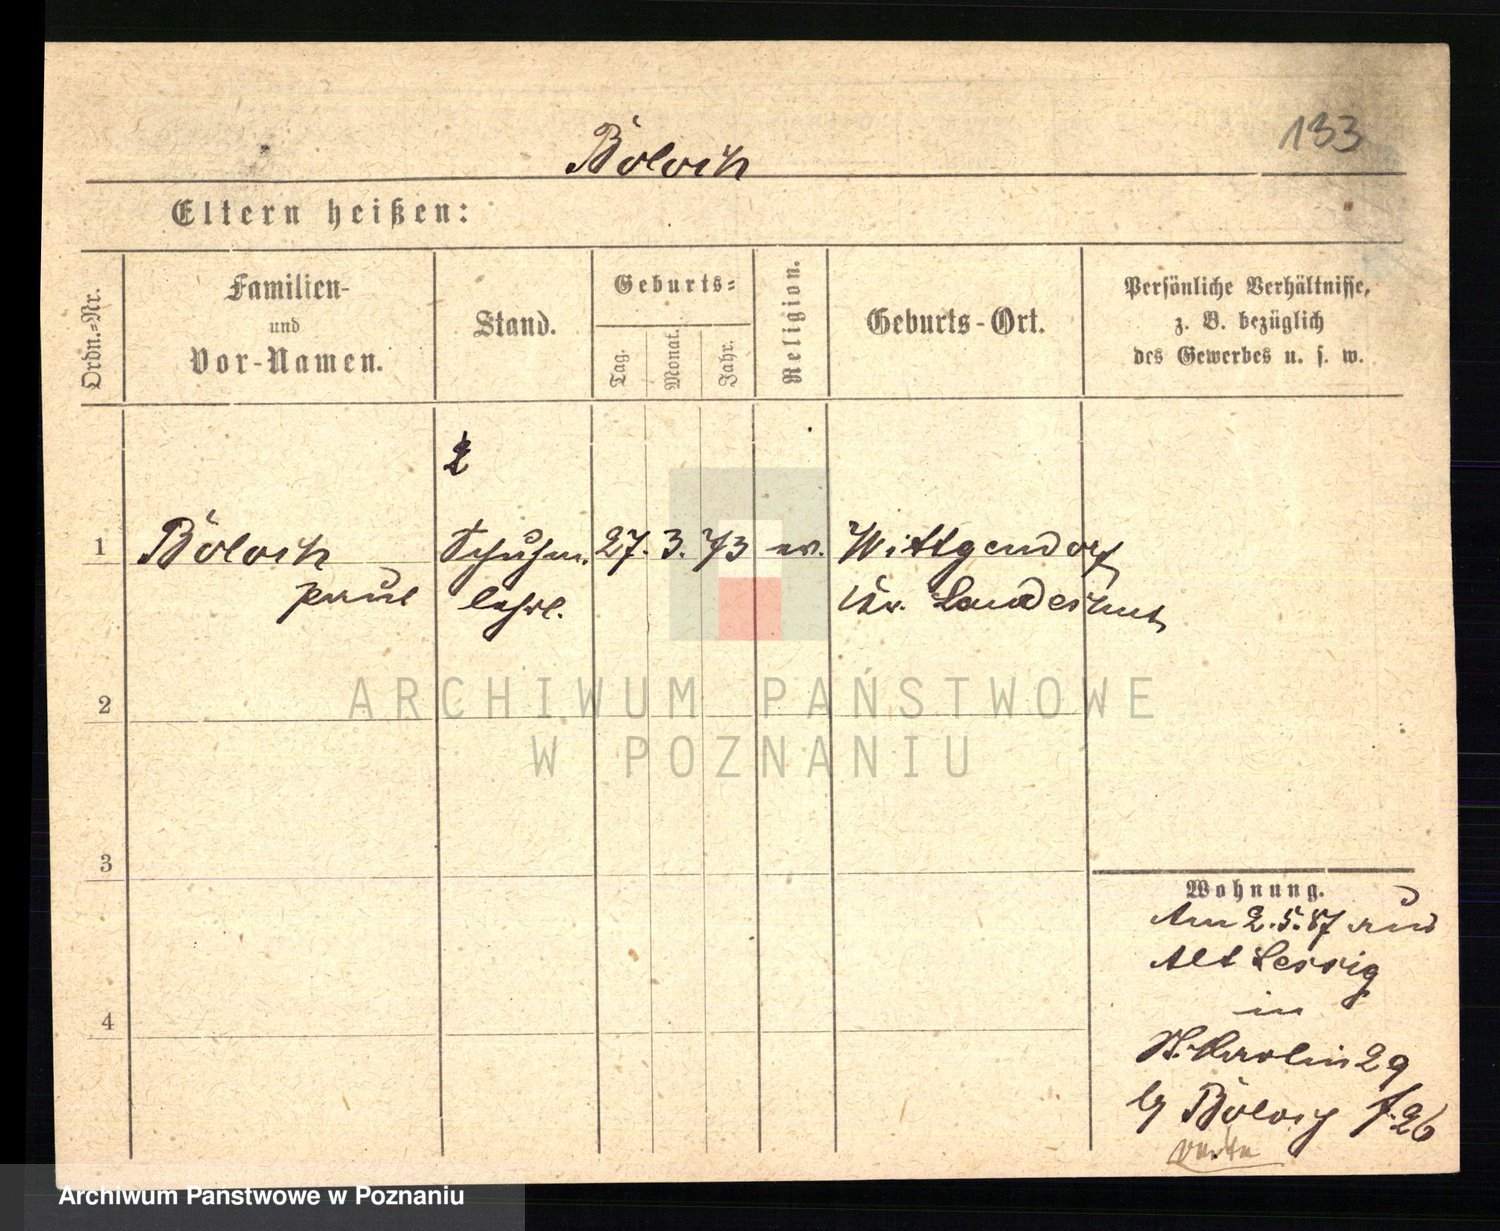 133
Bölosch
Eltern heißen:
Ordn.=Nr.
Familien-
und
Vor-Namen.
Stand.
Geburts=
Tag.
Monat.
Jahr.
Religion.
Geburts-Ort.
Persönliche Verhältnisse,
z. B. bezüglich
des Gewerbes u. s. w.
1 Schuhm. 27. 3. 73 ev. Wittgendorf
Paul lehrl. Kr. Landeshut
ARCHIWUM PAŃSTWOWE
W POZNANIU
2
3
4
Wohnung.
Am 2.5.87 aus
Alt
in
29
26
verte
Archiwum Panstwowe w Poznaniu